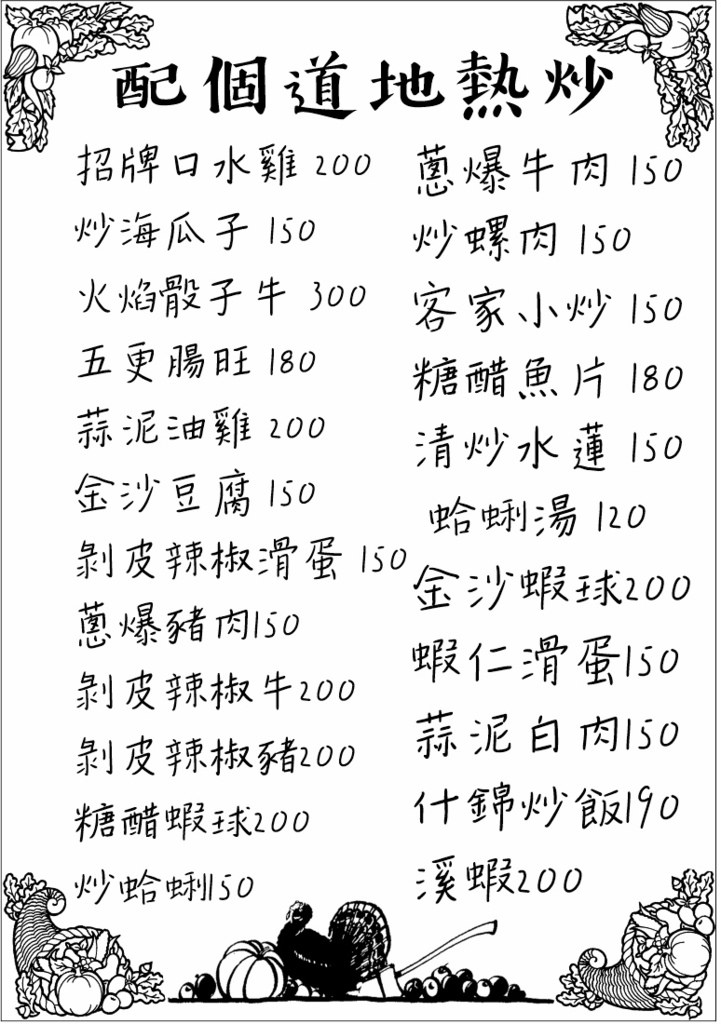 配個道地熱炒
招牌口水雞 200
炒海瓜子 150
火焰骰子牛 300
五更腸旺 180
蒜泥油雞 200
金沙豆腐 150
剝皮辣椒滑蛋 150
蔥爆豬肉150
剝皮辣椒牛200
剝皮辣椒豬200
糖醋蝦球200
炒蛤蜊150
蔥爆牛肉 150
炒螺肉 150
客家小炒 150
糖醋魚片 180
清炒水蓮 150
蛤蜊湯 120
金沙蝦球200
蝦仁滑蛋150
蒜泥白肉150
什錦炒飯190
溪蝦200